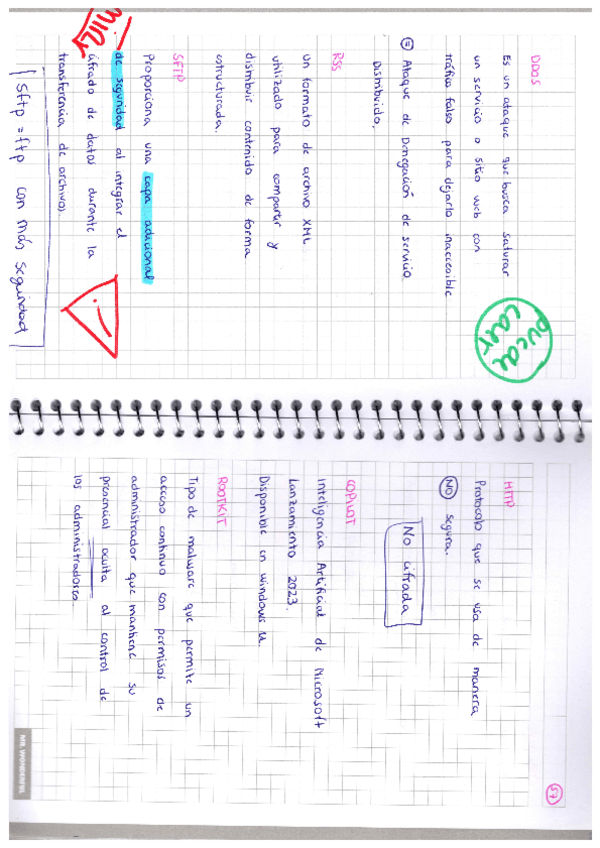 DDOS
Es un ataque que busca saturar
un servicio o sitio web con
tráfico falso para dejarlo inaccesible
= Ataque de Denegación de servicio
Distribuido.
puede
caer
RSS
un formato de archivo XML
utilizado para compartir y
distribuir contenido de forma
estructurada.
SFTP
Proporciona una capa adicional
de seguridad al integrar el
cifrado de datos durante la
transferencia de archivos.
!
Sftp = ftp con más seguridad
57
HTTP
Protocolo que se usa de manera
NO segura.
No cifrada
COPILOT
Inteligencia Artificial de Microsoft
Lanzamiento 2023.
Disponible en windows 11.
ROOTKIT
Tipo de malware que permite un
acceso continuo con permisos de
administrador que mantiene su
presencia oculta al control de
los administradores.
MR. WONDERFUL